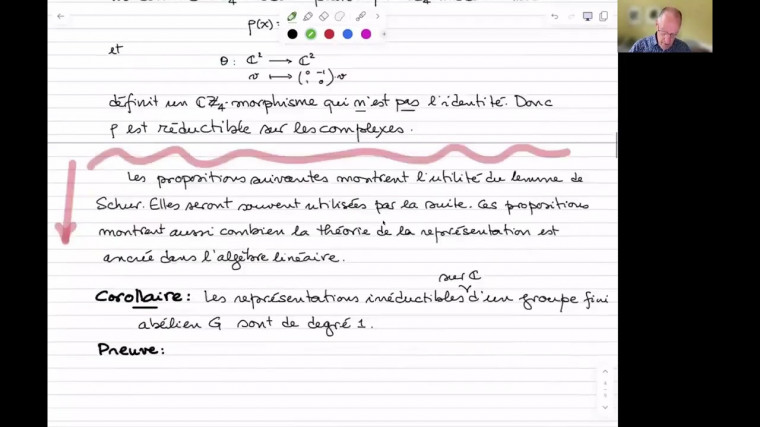 ρ(x):
et
θ: ℂ² ⟶ ℂ²
v ⟼ (0 -1 1 0) v
définit un ℂℤ₄-morphisme qui n'est pas l'identité. Donc
ρ est réductible sur les complexes.
Les propositions suivantes montrent l'utilité du lemme de
Schur. Elles seront souvent utilisées par la suite. Ces propositions
montrent aussi combien la théorie de la représentation est
ancrée dans l'algèbre linéaire.
sur ℂ
Corollaire: Les représentations irréductibles d'un groupe fini
abélien G sont de degré 1.
Preuve: